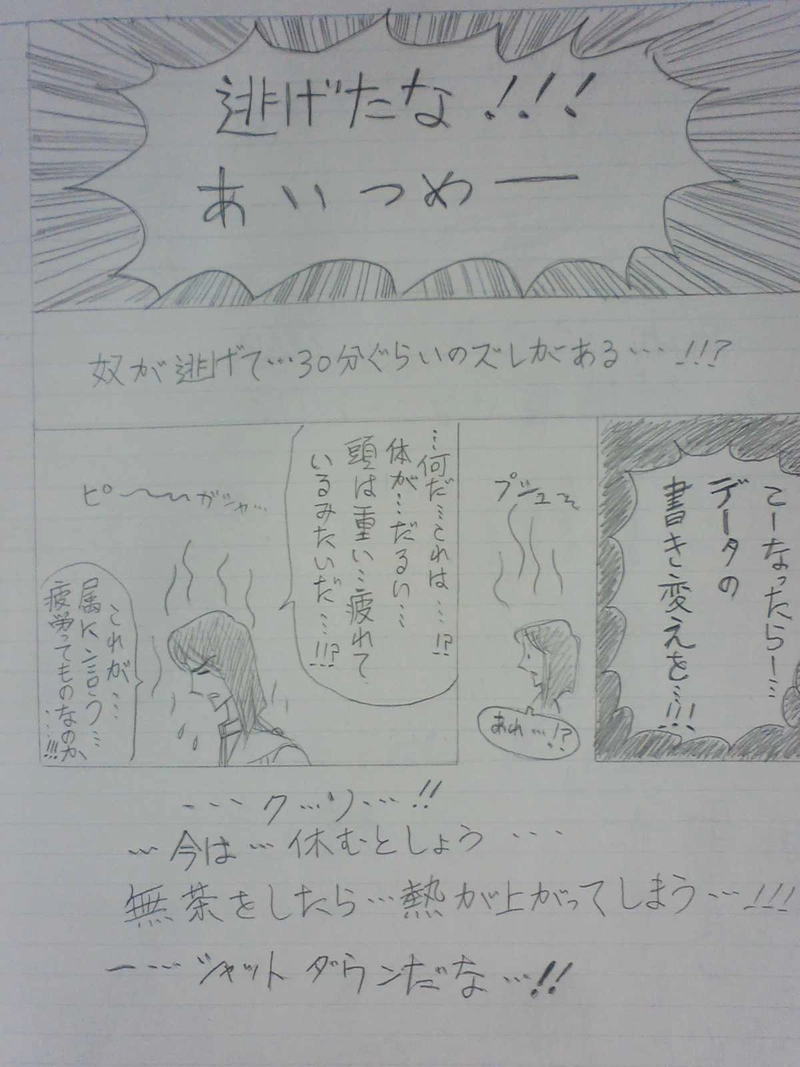 逃げたな!!!
あいつめー
奴が逃げて…30分ぐらいのズレがある…!!?
こーなったらー…
データの
書き変えを…!!!
プシュー
あれ…!?
…何だ…これは…!?
体が…だるい…
頭は重い…疲れて
いるみたいだ…!!!
ピ〜〜〜ガシャ…
これが…
属に言う…
疲労ってものなのか
…!!!
…クッソ…!!
…今は…休むとしょう…
無茶をしたら…熱が上がってしまう…!!!
ー…シャットダウンだな…!!